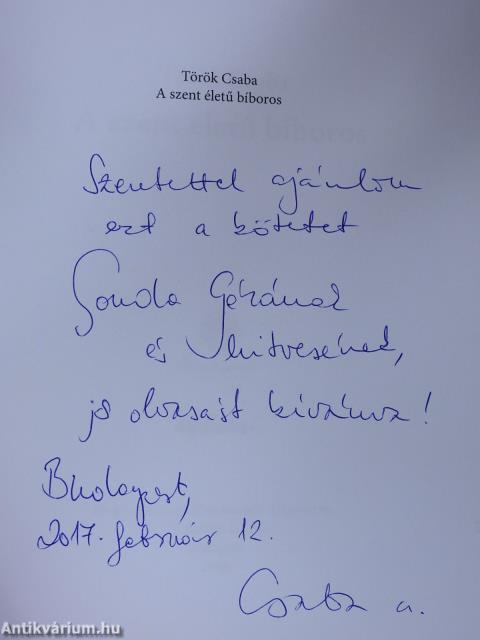 Török Csaba
A szent életű bíboros
Szeretettel ajánlom
ezt a kötetet
Gonda Gézának
és hitvesének,
jó olvasást kívánva!
Budapest,
2017. február 12.
Csaba a.
Antikvárium.hu